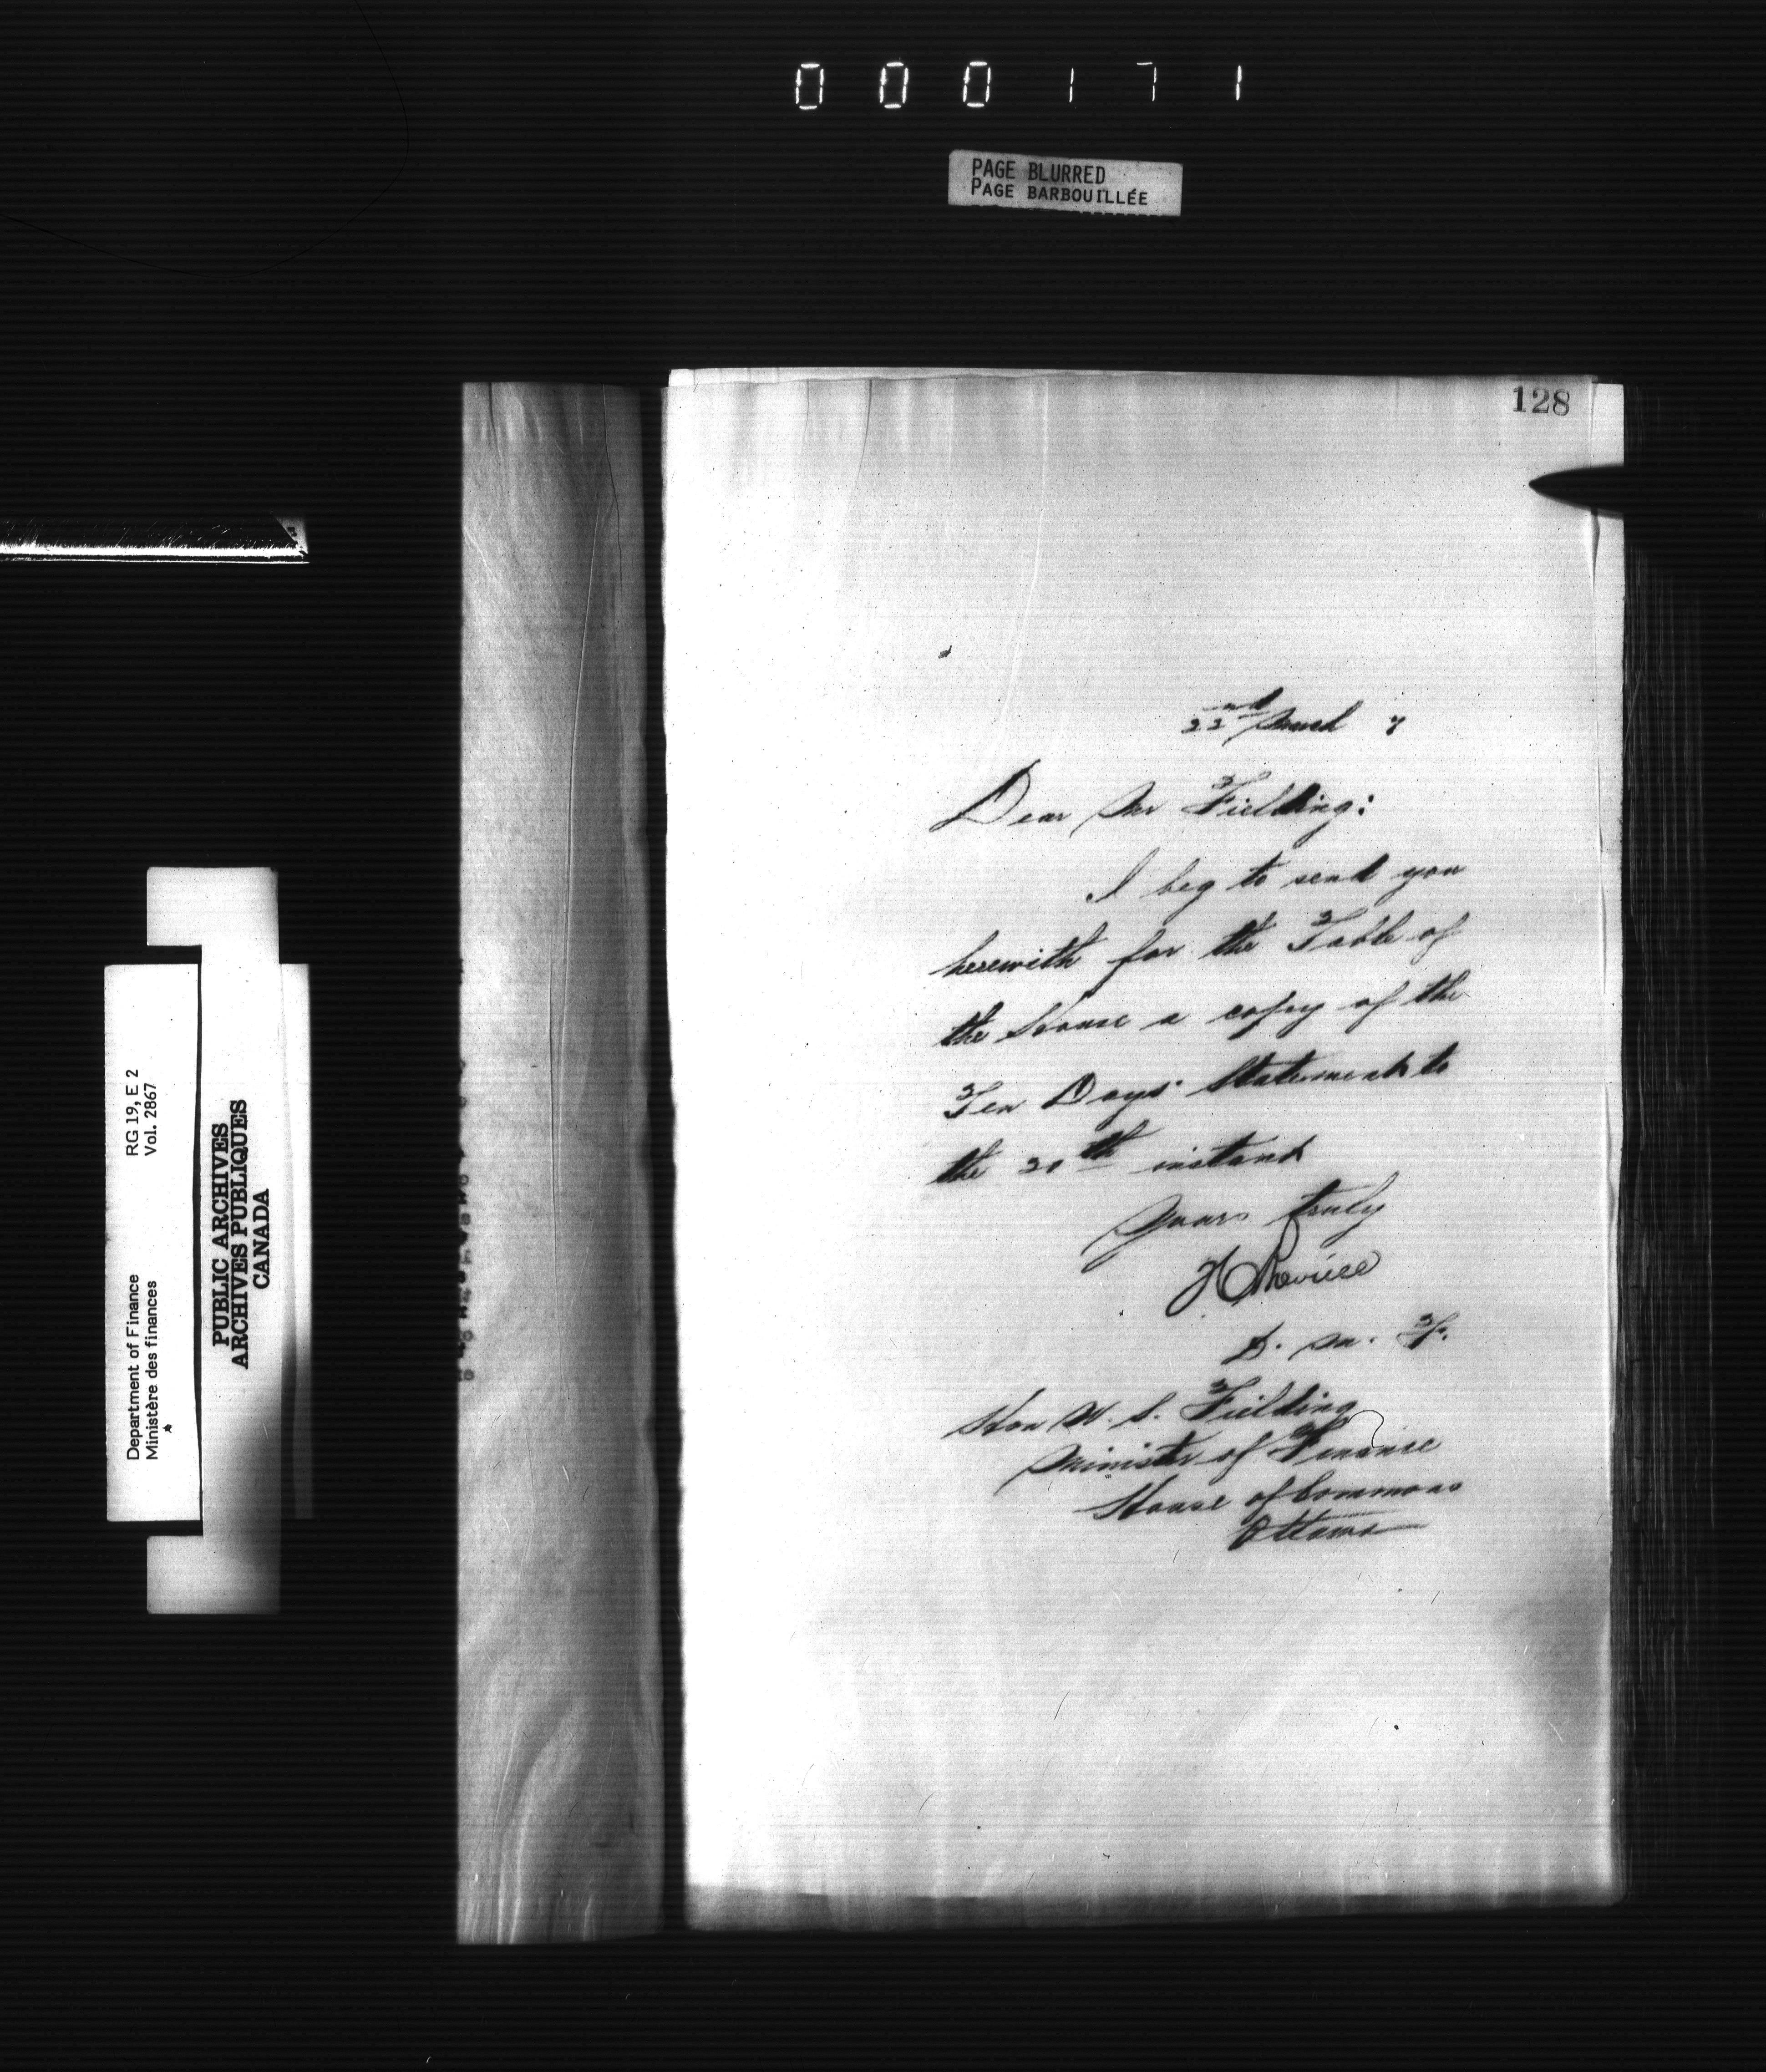 000171
PAGE BLURRED
PAGE BARBOUILLÉE
128
22nd March 7
Dear Mr Fielding:
I beg to send you
herewith for the Table of
the House a copy of the
Ten Days' Statement to
the 20th instant
Yours truly
D. M. F.
Hon W. S. Fielding
Minister of Finance
House of Commons
Ottawa
Department of Finance RG 19, E 2
Ministère des finances Vol. 2867
PUBLIC ARCHIVES
ARCHIVES PUBLIQUES
CANADA